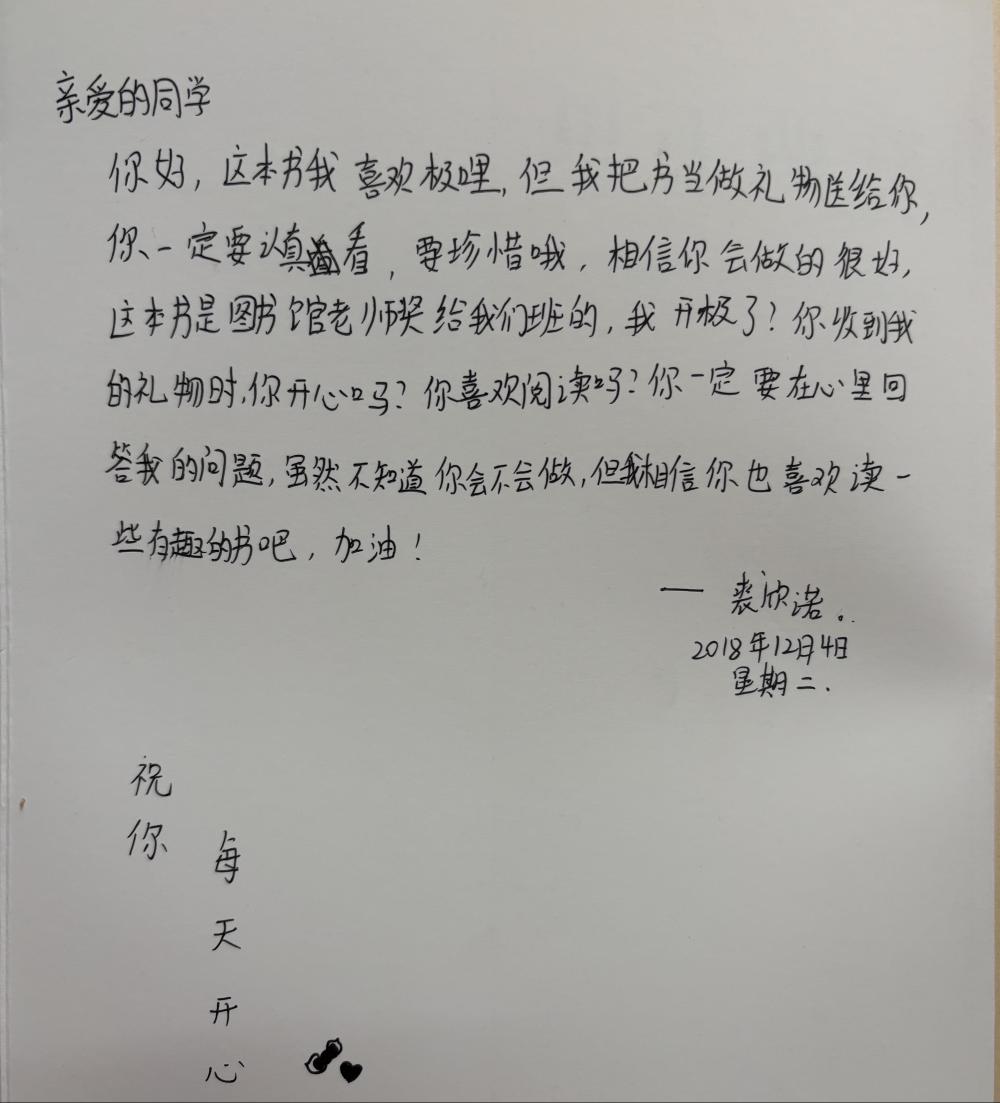 亲爱的同学
你好，这本书我喜欢极哩，但我把书当做礼物送给你，
你一定要认真看，要珍惜哦，相信你会做的很好，
这本书是图书馆老师奖给我们班的，我开极了？你收到我
的礼物时，你开心吗？你喜欢阅读吗？你一定要在心里回
答我的问题，虽然不知道你会不会做，但我相信你也喜欢读一
些有趣的书吧，加油！
——裘欣诺。
2018年12月4日
星期二.
祝你
每天开心